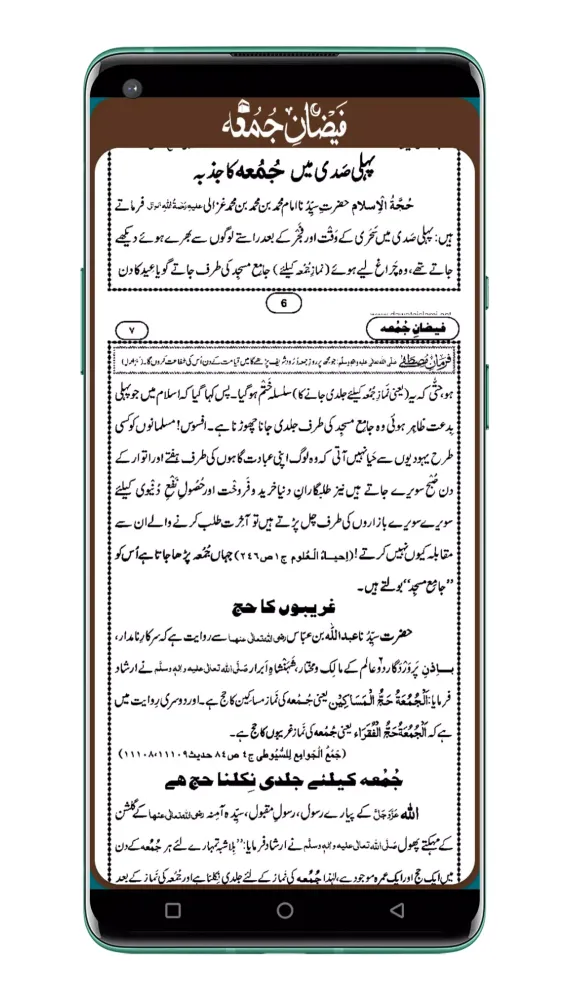 فیضانِ جُمُعہ
پہلی صَدی میں جُمُعہ کا جذبہ
حُجَّۃُ الْاِسلام حضرتِ سیِّدُنا امام محمد بن محمد بن محمد غزالی علیہ رحمۃ اللہ الوالی فرماتے
ہیں: پہلی صَدی میں سَحَری کے وَقْت اور فَجْر کے بعد راستے لوگوں سے بھرے ہوئے دیکھے
جاتے تھے، وہ چَراغ لیے ہوئے (نمازِ جُمُعہ کیلئے) جامِع مسجِد کی طرف جاتے گویا عید کا دن
6
www.dawateislami.net
فیضانِ جُمُعہ
۷
فرمانِ مصطفےٰ صلی اللہ تعالیٰ علیہ والہ وسلم: جو مجھ پر روزِ جمعہ دُرُود شریف پڑھے گا میں قیامت کے دن اُس کی شفاعت کروں گا۔
ہو، حتّٰی کہ یہ (یعنی نمازِ جُمُعہ کیلئے جلدی جانے کا) سلسلہ خَتْم ہوگیا۔ پس کہا گیا کہ اسلام میں جو پہلی
بدعت ظاہر ہوئی وہ جامِع مسجِد کی طرف جلدی جانا چھوڑنا ہے۔ افسوس! مسلمانوں کو کسی
طرح یہودیوں سے حَیا نہیں آتی کہ وہ لوگ اپنی عبادت گاہوں کی طرف ہفتے اور اتوار کے
دن صُبْح سویرے جاتے ہیں نیز طلبگارانِ دنیا خرید و فَروخْت اور حُصُولِ نَفْعِ دُنیوی کیلئے
سویرے سویرے بازاروں کی طرف چل پڑتے ہیں تو آخِرت طلب کرنے والے ان سے
مقابلہ کیوں نہیں کرتے! (اِحیاءُ الْعُلوم ج۱ ص۲۴۶) جہاں جُمُعہ پڑھا جاتا ہے اُس کو
”جامِع مسجِد“ بولتے ہیں۔
غریبوں کا حج
حضرت سیِّدُنا عبداللہ بن عبّاس رضی اللہ تعالیٰ عنہما سے روایت ہے کہ سرکارِ نامدار،
بِاِذنِ پَروَرْدَگار دو عالم کے مالِک و مختار، شَہَنشاہِ اَبرار صَلَّی اللہ تعالیٰ علیہ واٰلہٖ وسلَّم نے ارشاد
فرمایا: اَلْجُمُعَۃُ حَجُّ الْمَسَاکِیْن یعنی جُمُعہ کی نماز مساکین کا حج ہے۔ اور دوسری روایت میں
ہے کہ اَلْجُمُعَۃُ حَجُّ الْفُقَرَاء یعنی جُمُعہ کی نماز غریبوں کا حج ہے۔
(جَمْعُ الْجَوامِع لِلسُّیُوطی ج۴ ص۸۴ حدیث ۱۱۱۰۸،۱۱۱۰۹)
جُمُعہ کیلئے جلدی نِکلنا حج ہے
اللہ عَزَّوَجَلَّ کے پیارے رسول، رسولِ مقبول، سیِّدہ آمِنہ رضی اللہ تعالیٰ عنہا کے گلشن
کے مہکتے پھول صَلَّی اللہ تعالیٰ علیہ واٰلہٖ وسلَّم نے ارشاد فرمایا: ”بلاشبہ تمہارے لئے ہر جُمُعہ کے دن
میں ایک حج اور ایک عمرہ موجود ہے، لہٰذا جُمُعہ کی نماز کے لئے جلدی نِکلنا ہے اور جُمُعہ کی نماز کے بعد